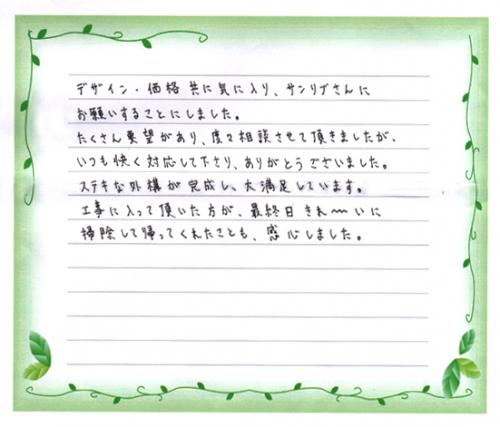 デザイン・価格共に気に入り、サンリブさんに
お願いすることにしました。
たくさん要望があり、度々相談させて頂きましたが、
いつも快く対応して下さり、ありがとうございました。
ステキな外構が完成し、大満足しています。
工事に入って頂いた方が、最終日きれ〜いに
掃除して帰ってくれたことも、感心しました。